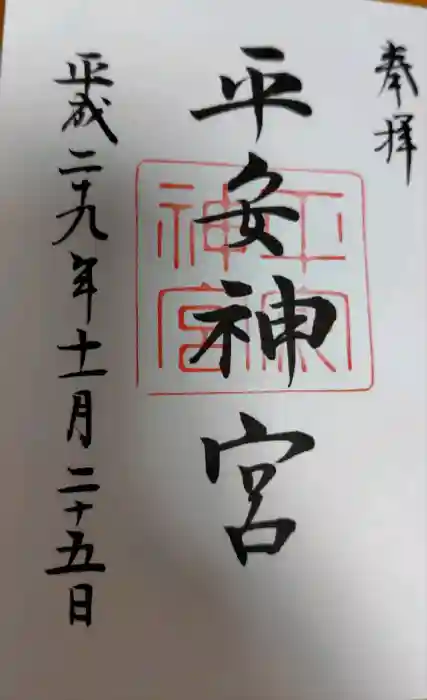 奉拝
平安神宮
平安神宮
平成二十九年十一月二十五日